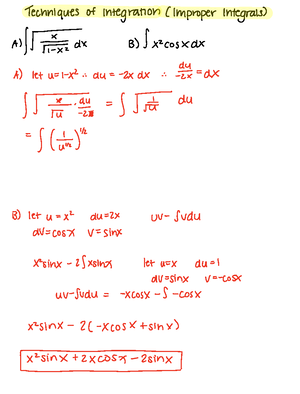 Techniques of Integration (Improper Integrals)
A) ∫√(x/√(1-x²)) dx    B) ∫x²cosx dx
A) let u=1-x² ∴ du = -2x dx ∴ du/-2x = dx
∫√(x/√u · du/-2x) = ∫√(1/√u) du
= ∫(1/u^(1/2))^(1/2)
B) let u = x²    du=2x    uv-∫vdu
dv=cosx    v=sinx
x²sinx - 2∫xsinx    let u=x    du=1
dv=sinx    v=-cosx
uv-∫vdu = -xcosx-∫-cosx
x²sinx - 2(-xcosx+sinx)
x²sinx+2xcosx-2sinx